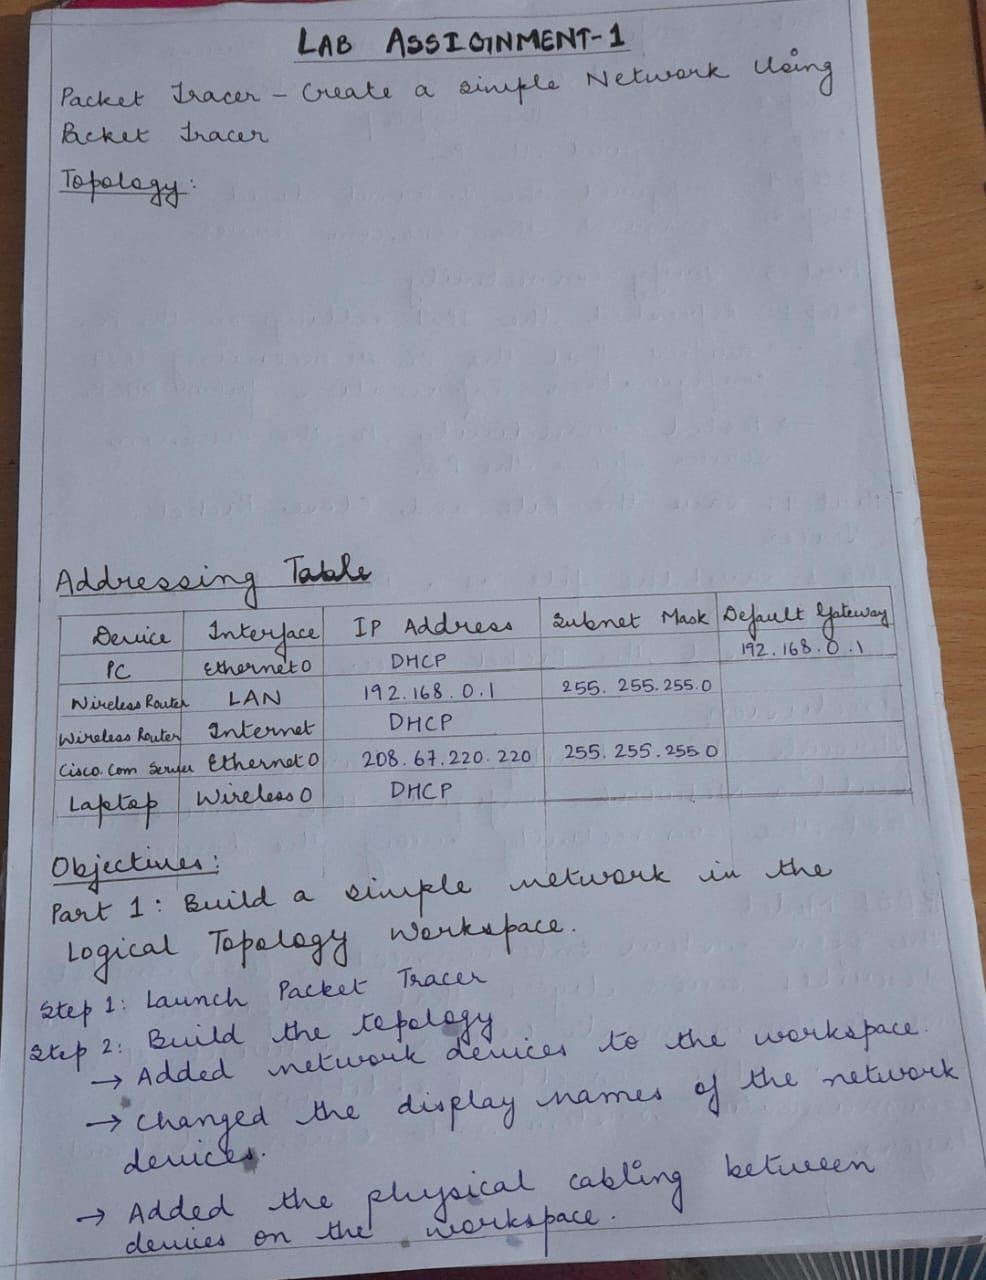 LAB ASSIGNMENT-1
Packet Tracer - Create a simple Network Using
Packet Tracer
Topology:
Addressing Table
Device Interface IP Address Subnet Mask Default Gateway
PC Ethernet0 DHCP 192.168.0.1
Wireless Router LAN 192.168.0.1 255.255.255.0
Wireless Router Internet DHCP
Cisco.Com Server Ethernet0 208.67.220.220 255.255.255 0
Laptop Wireless0 DHCP
Objectives:
Part 1: Build a simple network in the
Logical Topology Workspace.
Step 1: Launch Packet Tracer
Step 2: Build the topology
→ Added network devices to the workspace.
→ Changed the display names of the network
devices.
→ Added the physical cabling between
devices on the workspace.